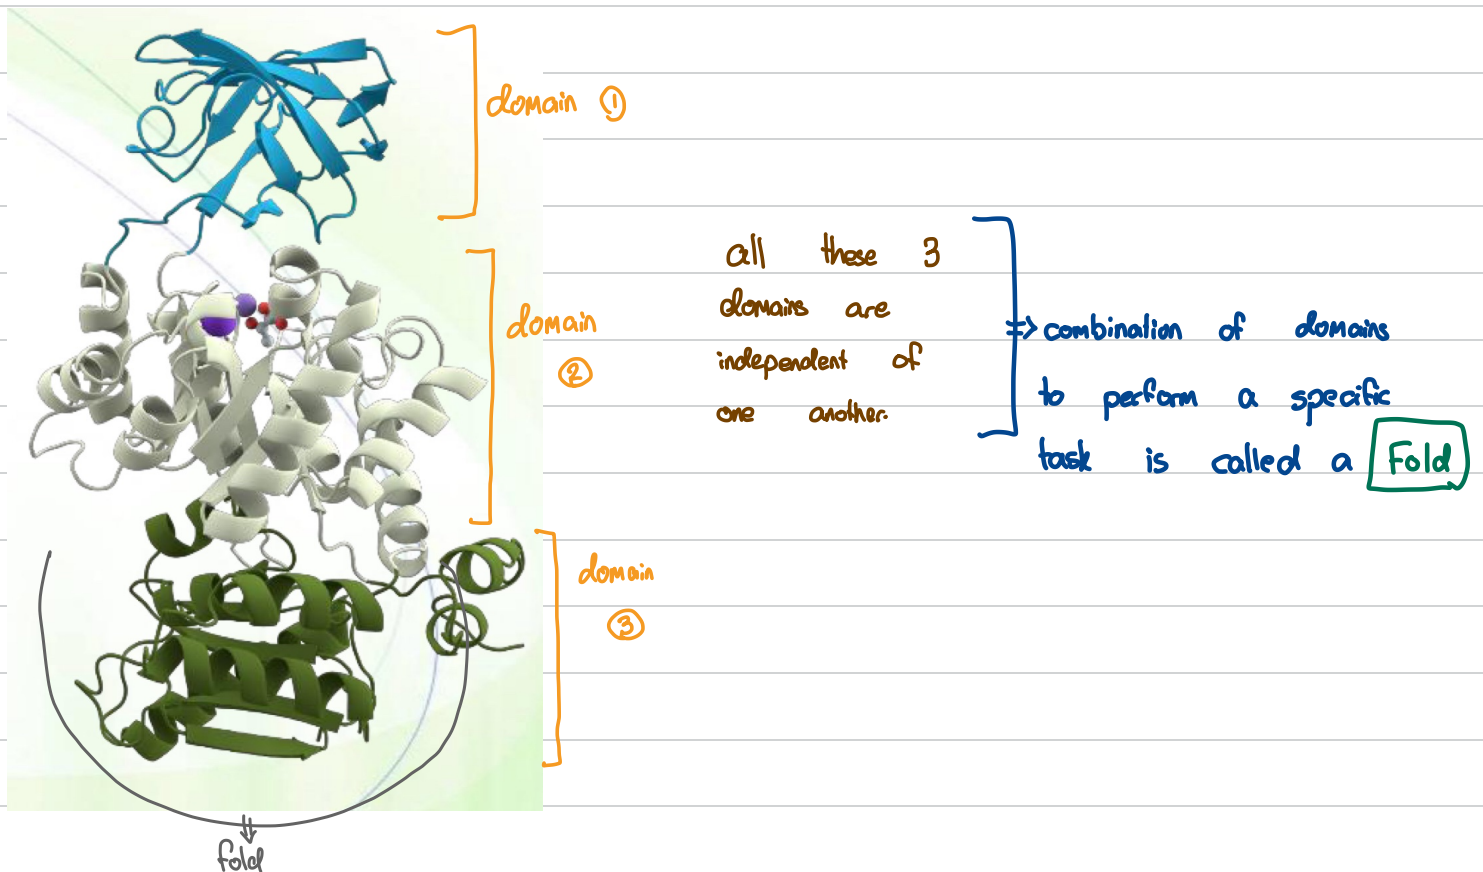 domain ①
domain
②
all these 3
domains are
independent of
one another.
⇒ combination of domains
to perform a specific
task is called a Fold
domain
③
fold